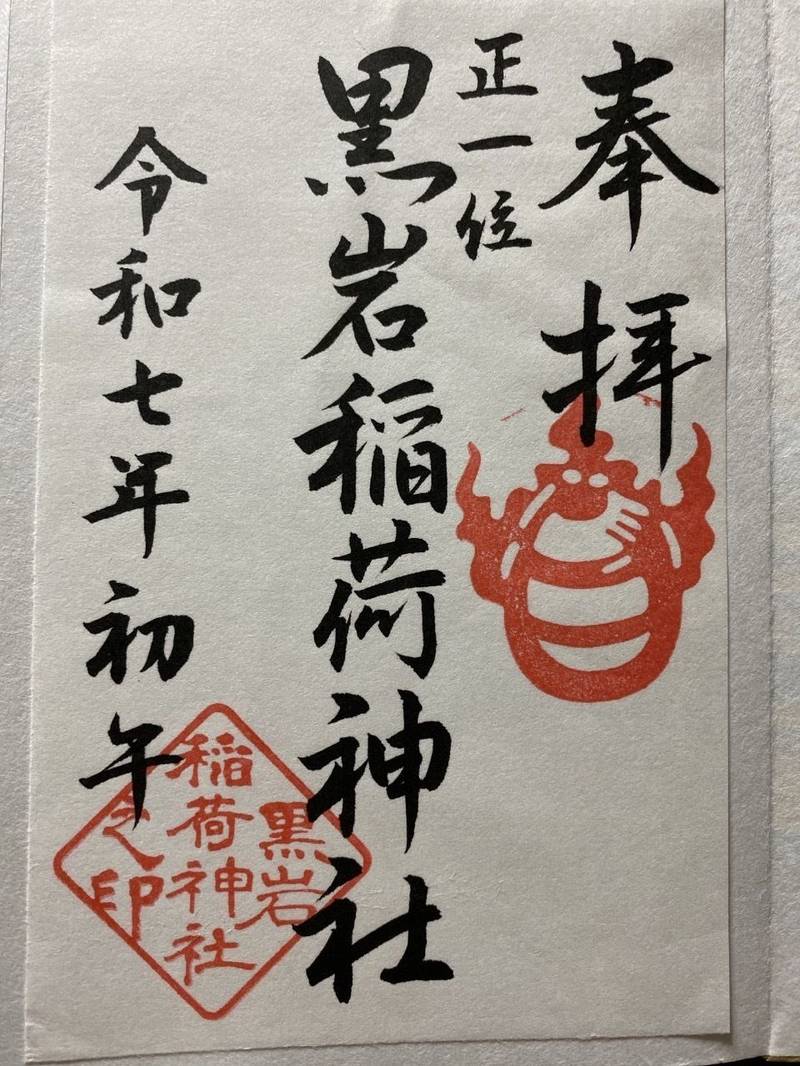 奉拝
正一位
黒岩稲荷神社
令和七年初午
黒岩
稲荷神社
之印